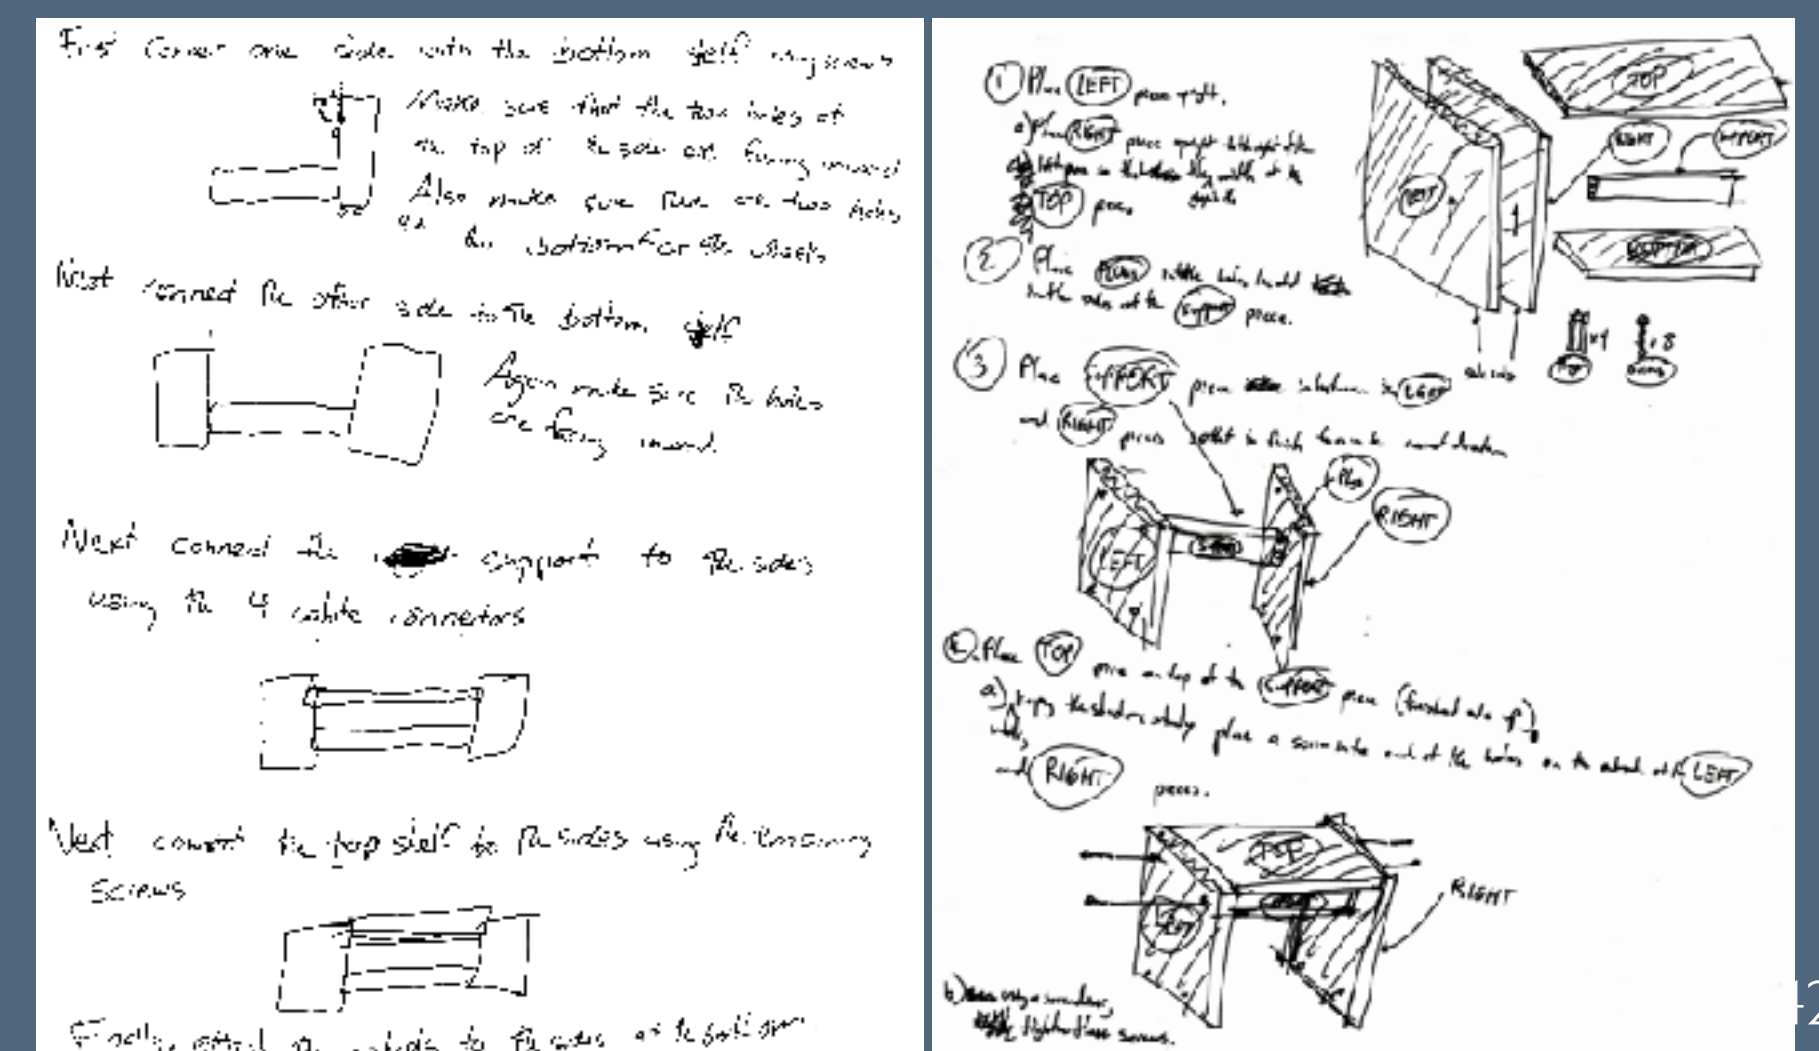 First connect one side with the bottom shelf using screws
Make sure that the two holes at
the top of the side are facing inward
Also make sure there are two holes
on the bottom for the wheels
Next connect the other side to the bottom shelf
Again make sure the holes
are facing inward.
Next connect the support to the sides
using the 4 white connectors
Next connect the top shelf to the sides using the remaining
screws
Finally, attach the wheels to the sides at the bottom
① Place LEFT piece upright.
a) Place RIGHT piece upright to the right of the
the width of the
TOP piece.
② Place PLUGS in the holes located
in the sides of the SUPPORT piece.
③ Place SUPPORT piece in between LEFT
and RIGHT pieces
TOP
RIGHT
SUPPORT
LEFT
BOTTOM
x 8
LEFT
RIGHT
④ Place TOP piece on top of the SUPPORT piece (finished side up)
a) place a screw into each of the holes on the outside of the LEFT
and RIGHT pieces.
TOP
LEFT
RIGHT
b) using a screwdriver,
tighten these screws.
42